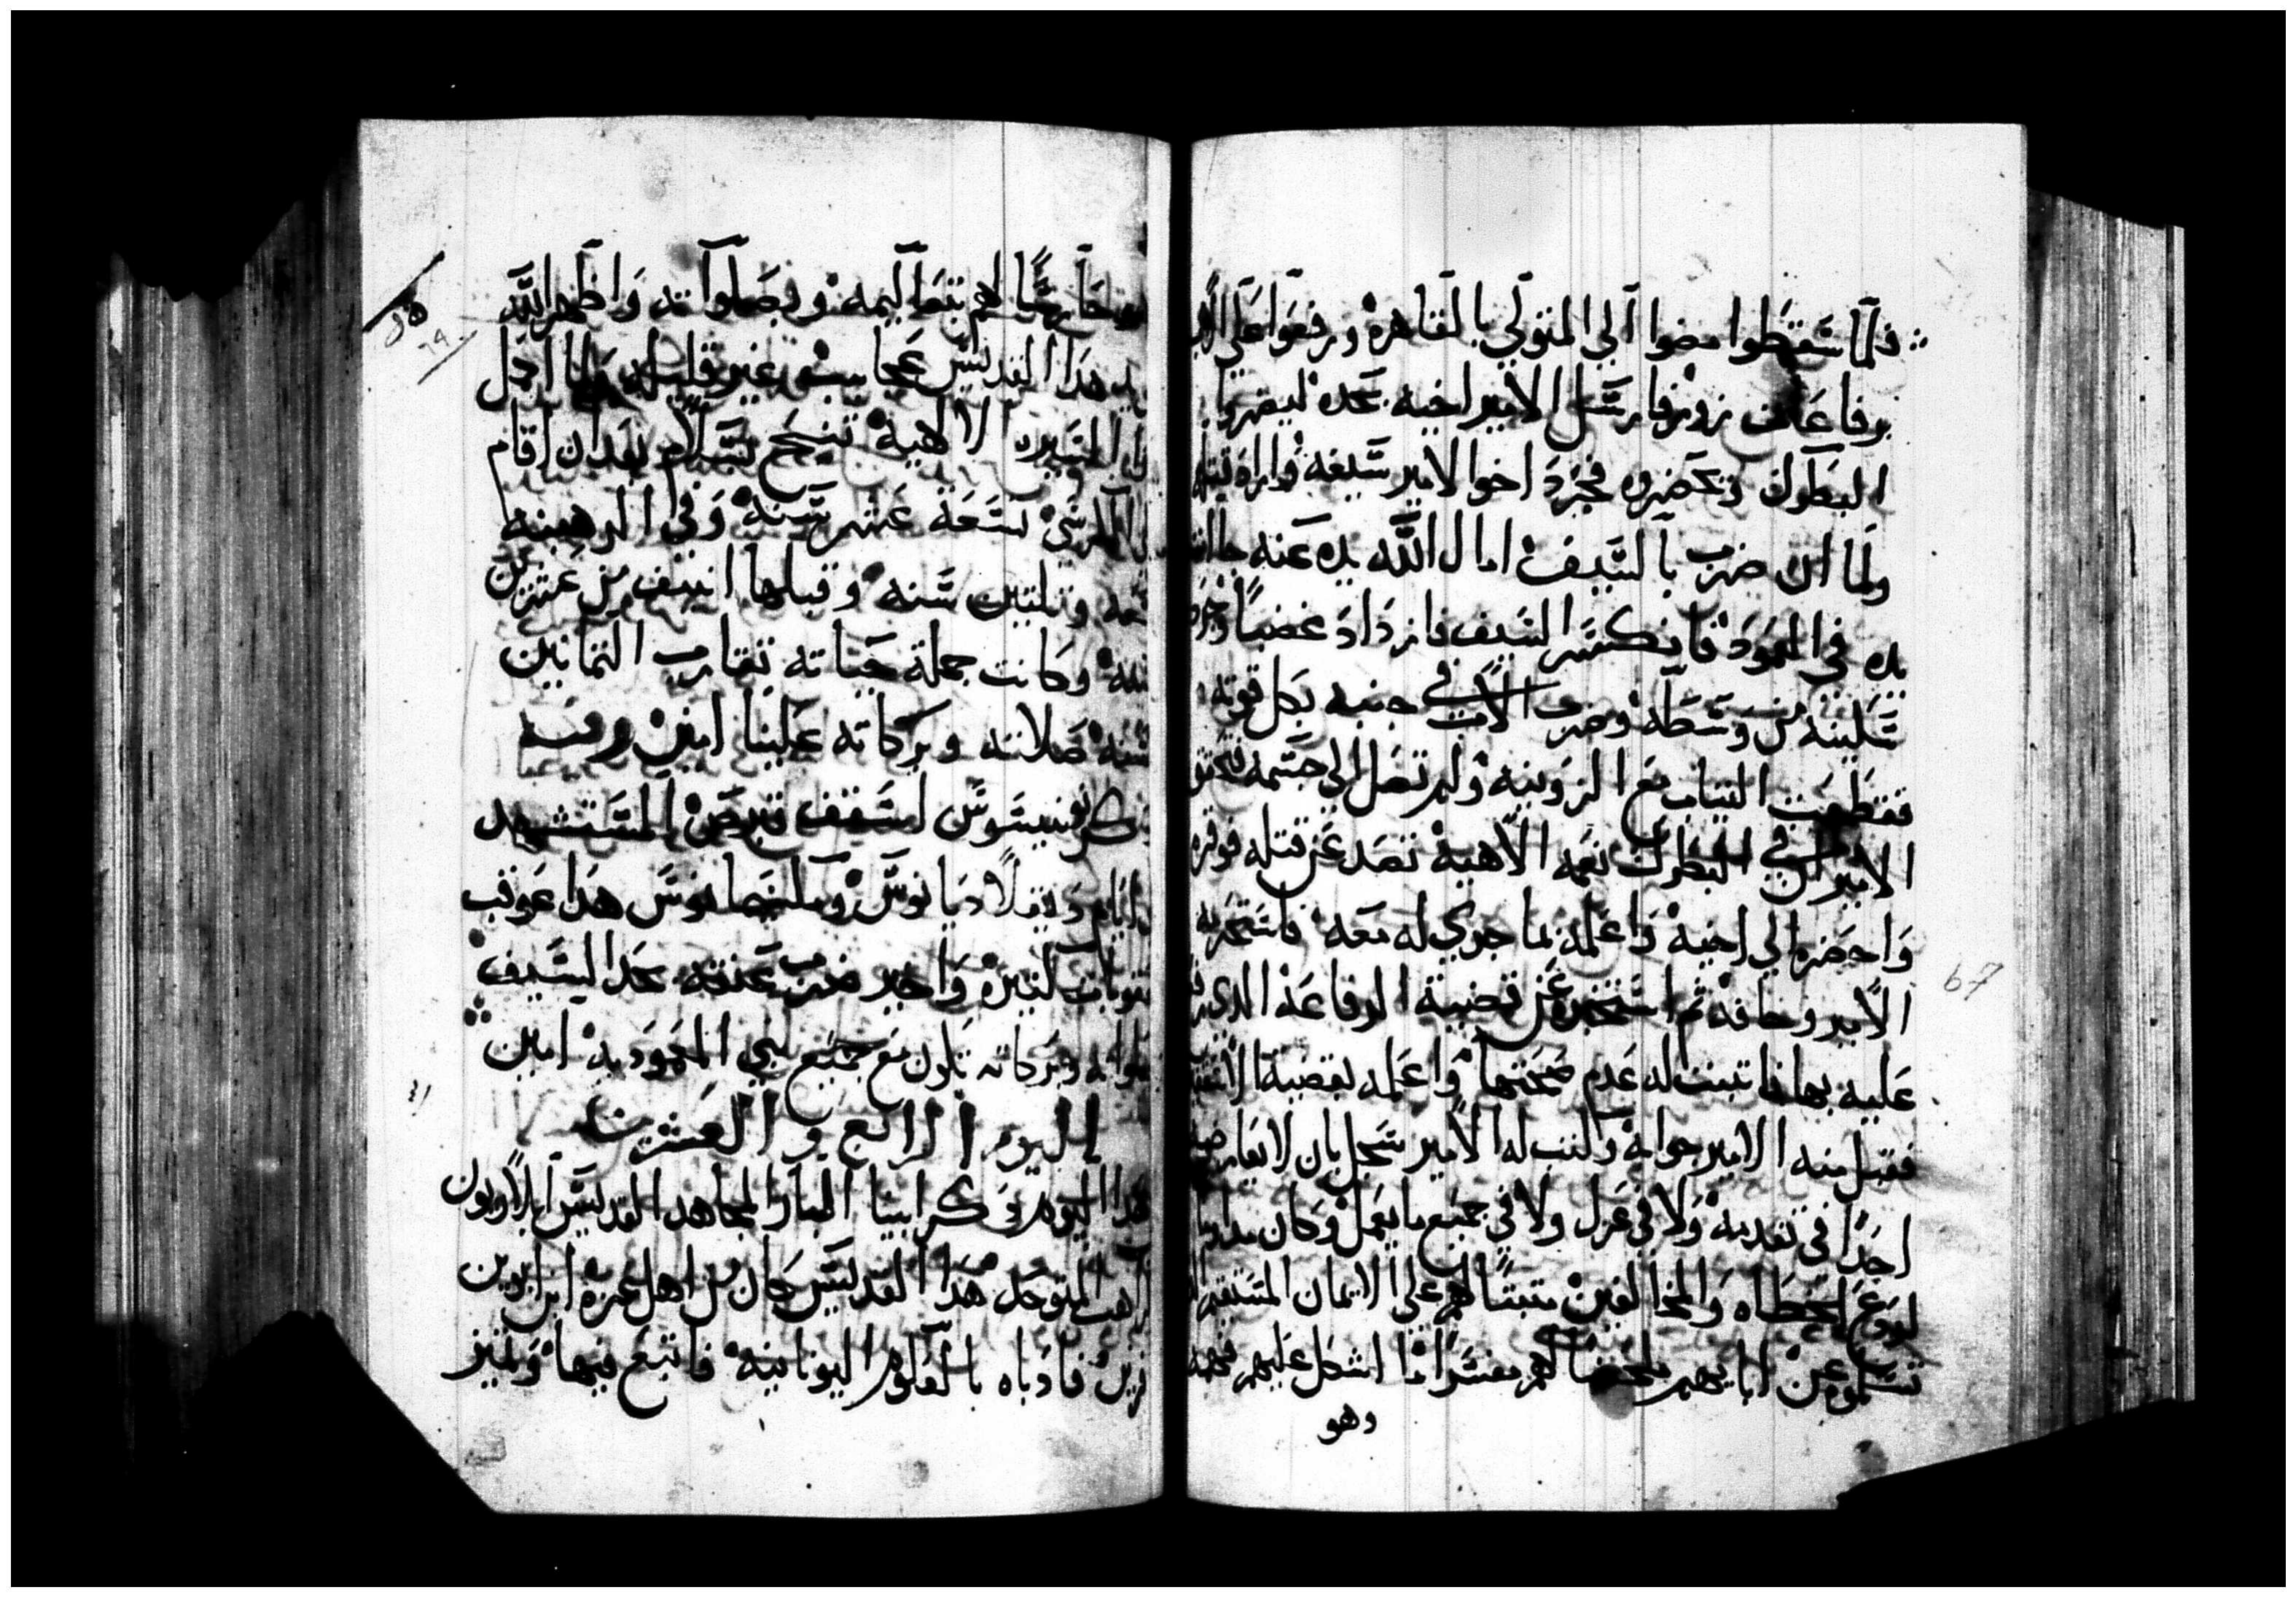 فلما سقطوا مضوا الي المتولي بالقاهره ورفعوا علي الاب
برفاعات زور فارسل الامير اخيه بحده ليضربوا
البطرك ويحضروه فجرد اخوا الامير سيفه واراد قتله
ولما ان ضرب بالسيف امال الله يده عنه جاات
يده في العمود فانكسر السيف فازداد غضبا وجرد
سكينه من وسطه وضرب الاب في جنبه بكل قوته
فقطعت التياب مع الزونيه ولم تصل الي جسمه فتحقق
الامير ان في البطرك نعمه الاهية تصد عن قتله فوقره
واحضره الي اخيه واعلمه بما جري له معه فاستخبره
الامير وخافه ثم استخبره عن قضية الرفاعه الذي
عليه بها فاتبت له عدم صحتها واعلمه بقضية
فقبل منه الامير جوابه وكتب له الامير سجل بان لا يعارضه
احدا في تقدمه ولا في عزل ولا في جميع ما يعمل وكان مداوم
لردع الخطاه والمخالفين متبتا لهم علي الايمان المستقيم
تسلموه عن ابايهم ملخصا لهم مفسرا ما اشكل عليهم فهمه
وهو
لهم بتعاليمه وبصلواته واظهر الله
هذا القديس عجايب غير قليله ولما اكمل
السيره الالهية تنيح بسلام بعد ان اقام
الكرسي تسعة عشر سنه وفي الرهبنه
وتلتين سنه وقبلها انيف من عشرين
سنه وكانت جملة حياته تقارب التمانين
سنه صلاته وبركاته علينا امين وفيه
اسقف قبرص المستشهد
ايام دقلاديانوس ومكسيمانوس هذا عوقب
عقوبات كتيره واخير ضربت عنقه بحد السيف
صلواته وبركاته تكون مع جميع بني المعموديه امين
اليوم الرابع والعشرين
هذا اليوم ذكر ابينا البار المجاهد القديس ايلاريون
الراهب المتوحد هذا القديس كان من اهل غزه ابن ابوين
فادباه بالعلوم اليونانيه فاتبع فيها وتميز